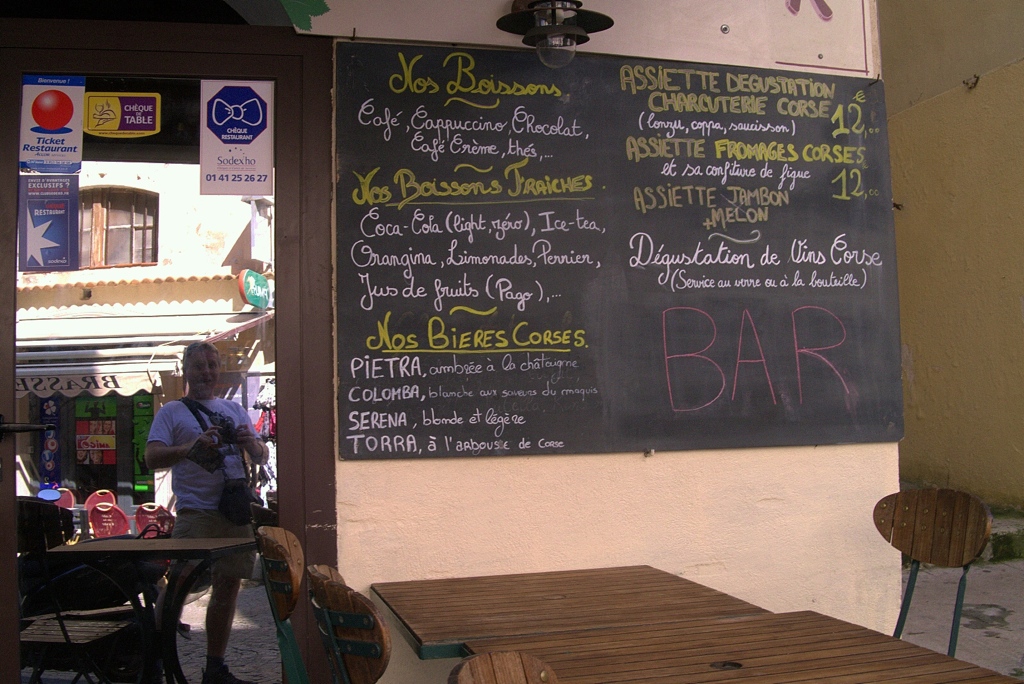 Bienvenue !
Ticket
Restaurant
CHÈQUE
DE
TABLE
CHÈQUE
RESTAURANT
Sodexho
01 41 25 26 27
EXCLUSIFS !
RESTAURANT
BRASSE
Nos Boissons
Café, Cappuccino, Chocolat,
Café Crème, thés,...
Nos Boissons Fraîches.
Coca-Cola (light, zéro), Ice-tea,
Orangina, Limonades, Perrier,
Jus de fruits (Pago),...
Nos Bieres Corses.
PIETRA, ambrée à la châtaigne
COLOMBA, blanche aux saveurs du maquis
SERENA, blonde et légère
TORRA, à l'arbouse de Corse
ASSIETTE DEGUSTATION
CHARCUTERIE CORSE 12,..€
(lonzu, coppa, saucisson)
ASSIETTE FROMAGES CORSES
et sa confiture de figue 12,..
ASSIETTE JAMBON
+MELON
Dégustation de Vins Corse
(Service au verre ou à la bouteille)
BAR